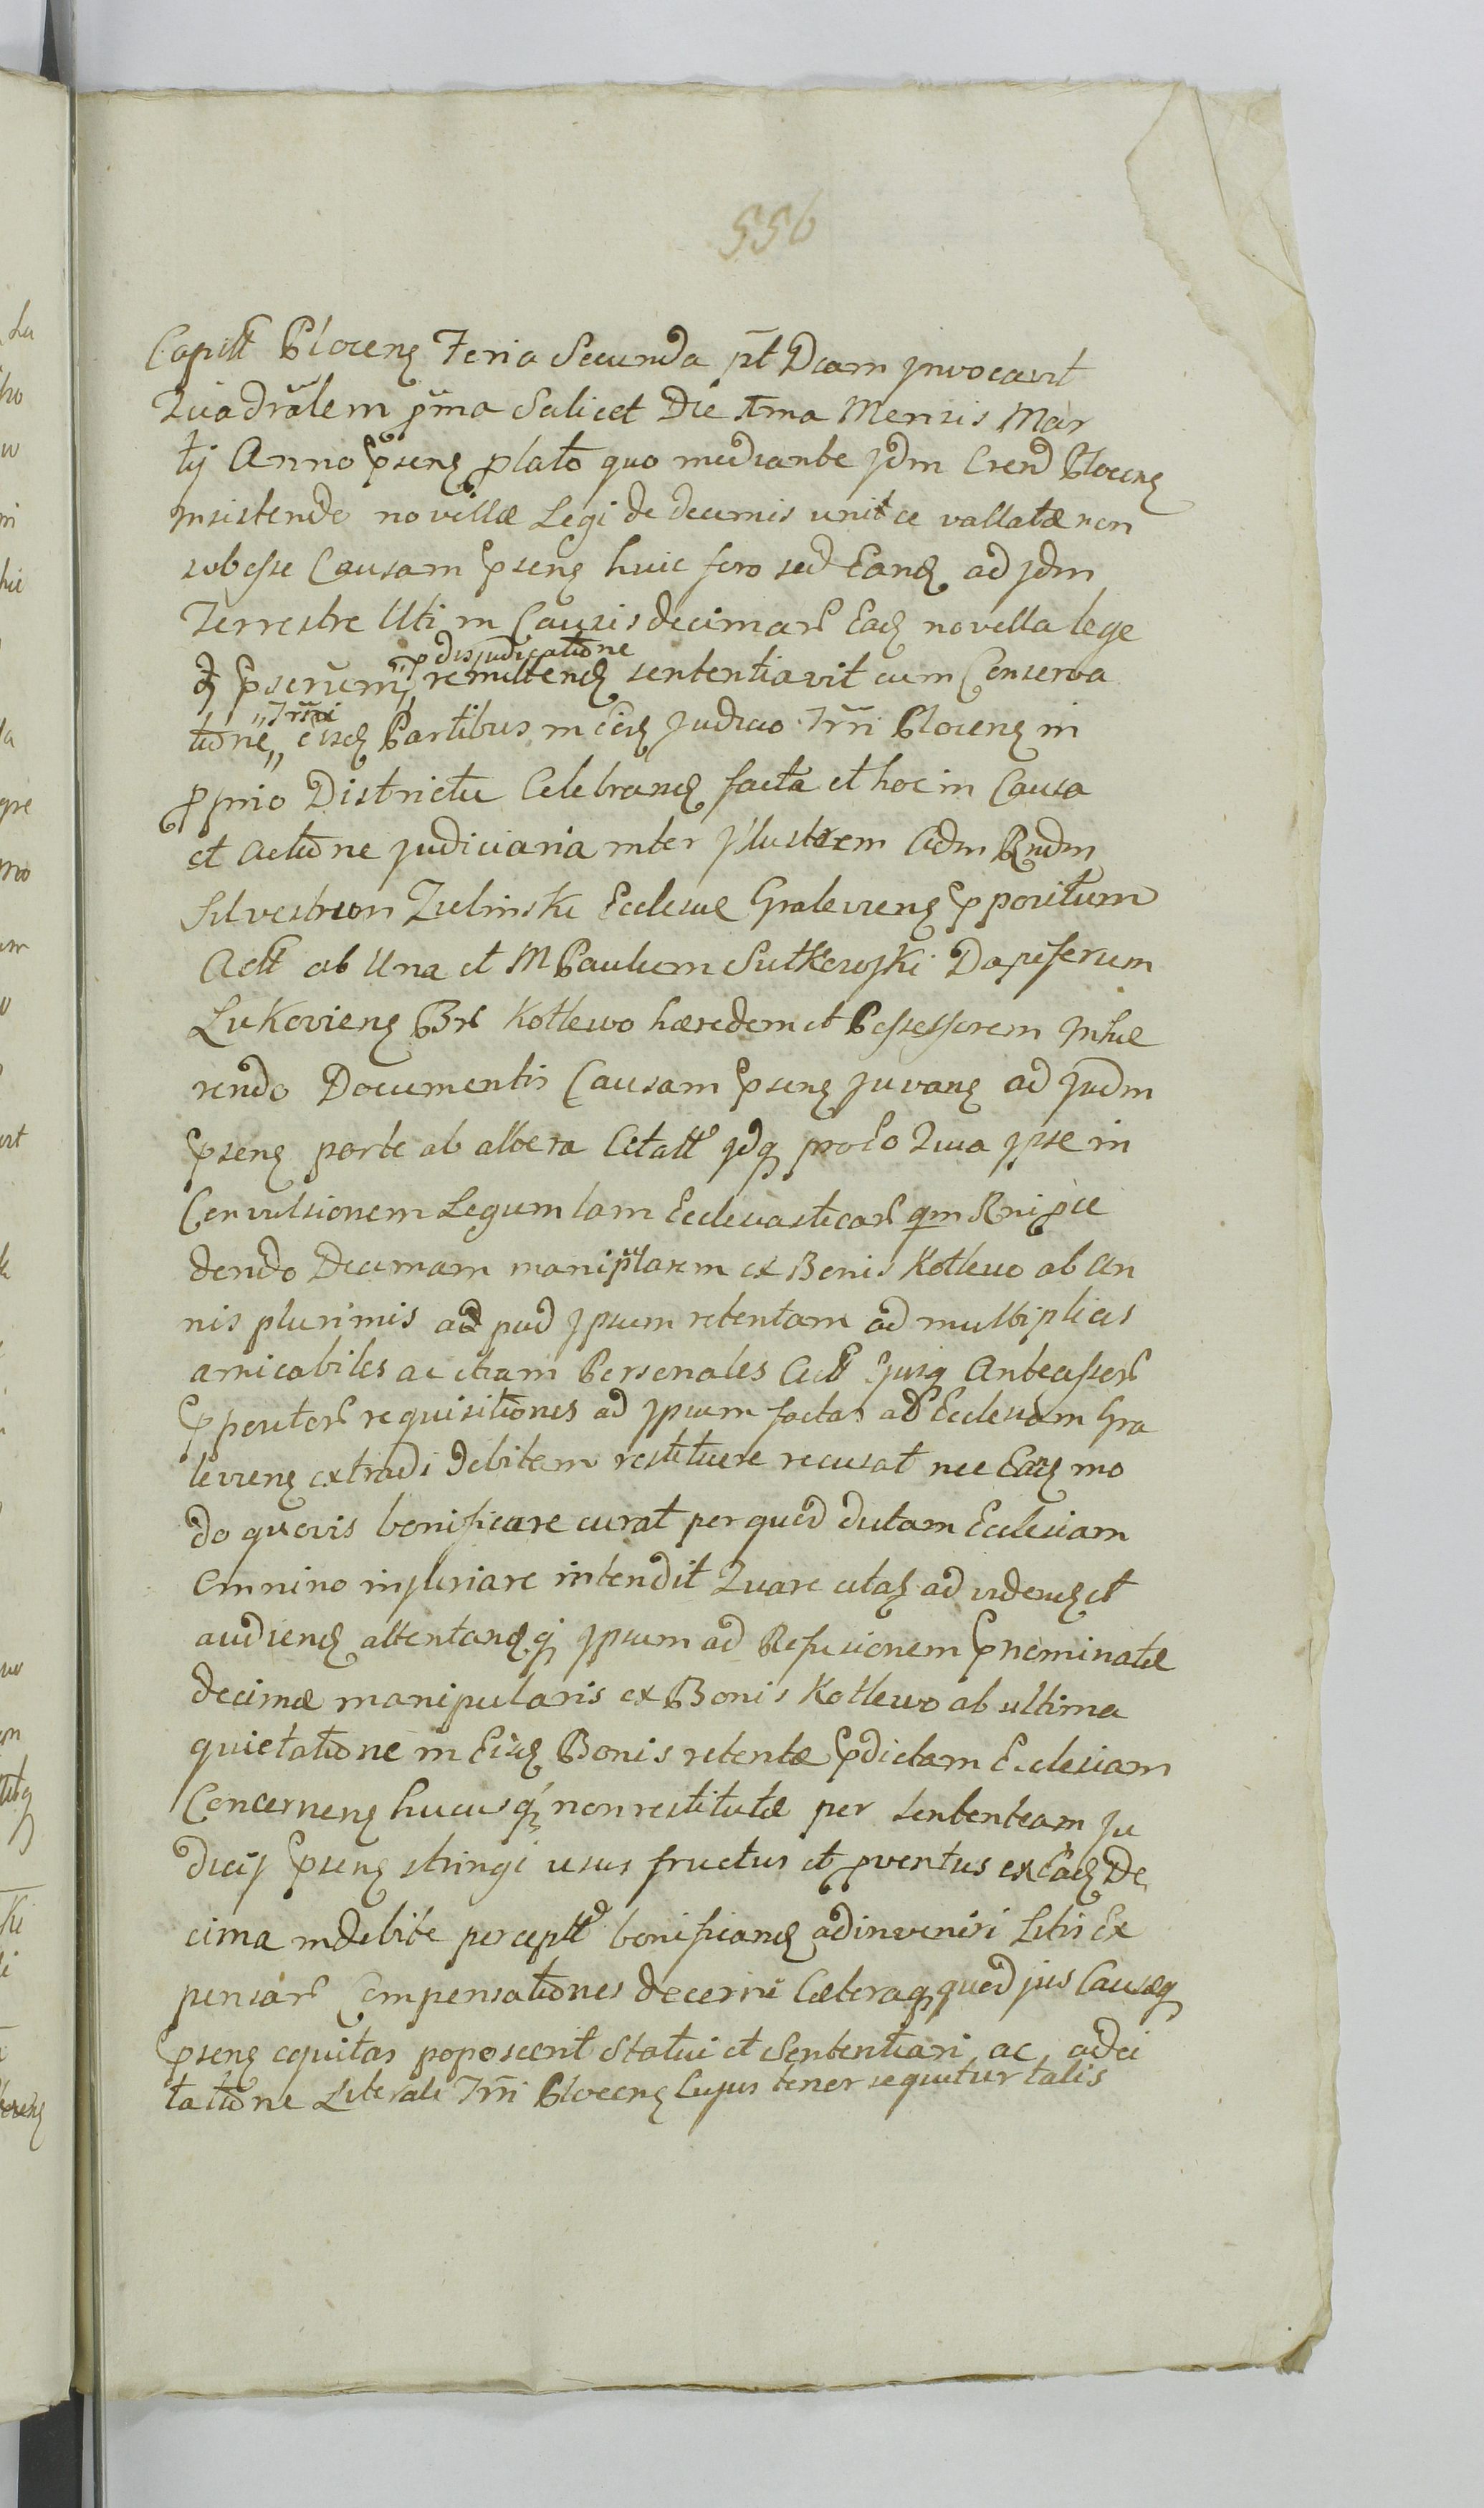 556
Capitt Plocens Feria Secunda pt Dcam jnvocavit
Quadralem pma Scilicet Die ma Mensis Mar
tij Anno psens plato quo mediante jdm Crend Plocens
jnsistendo novellæ Legi de decimis unitæ vallatæ non
subesse Causam psens huic foro sed Eand ad jdm
Terrestre Uti in Causis decimar Ead novella lege
p disjudicatione
pserum remittend sententiavit cum Conserva
Trri
tione eisd Partibus in Eod judicio Trri Plocens in
pprio Districtu Celebrand facta et hoc in Causa
et Actione judiciaria inter jllustrem Adm Rndm
Silvestrum Zielinski Ecclesiæ Graleviens ppositum
Actt ab Una et M Paulum Sutkowski Dapiferum
Lukoviens Br Kotlewo hæredem et Possessorem jnhæ
rendo Documentis Causam psens juvans ad judm
psens parte ab altera Citatt jdq pro Eo Quia jpse in
Convulsionem Legum tam Ecclesiasticar qm Rni pie
dendo Decimam maniplarem ex Bonis Kotlewo ab an
nis plurimis ad pud jpsum retentam ad multiplices
amicabiles ac etiam Personales Actt Ejusq Anteassor
ppositor requisitiones ad jpsum factas ad Ecclesiam Gra
leviens extradi debitam restituere recusat nec Ead mo
do quovis bonificare curat per quod dictam Ecclesiam
Omnino injuriare intendit Quare citat ad vidend et
audiend attentandq jpsum ad Refusionem pnominatæ
decimæ manipularis ex Bonis Kotlewo ab ultima
quietatione in Eisd Bonis retentæ pdictam Ecclesiam
Concernens hucusq non restitutæ per sententiam ju
dicij psens stringi usus fructus et pventus ex Ead De
cima indebite perceptt bonificand adinveniri Litis Ex
pensar Compensationes decerni Cæteraq quod jus Causæq
psens equitas poposcerit Statui et Sententiari ac adci
tatione Literali Trri Plocens Cujus tenor sequitur talis